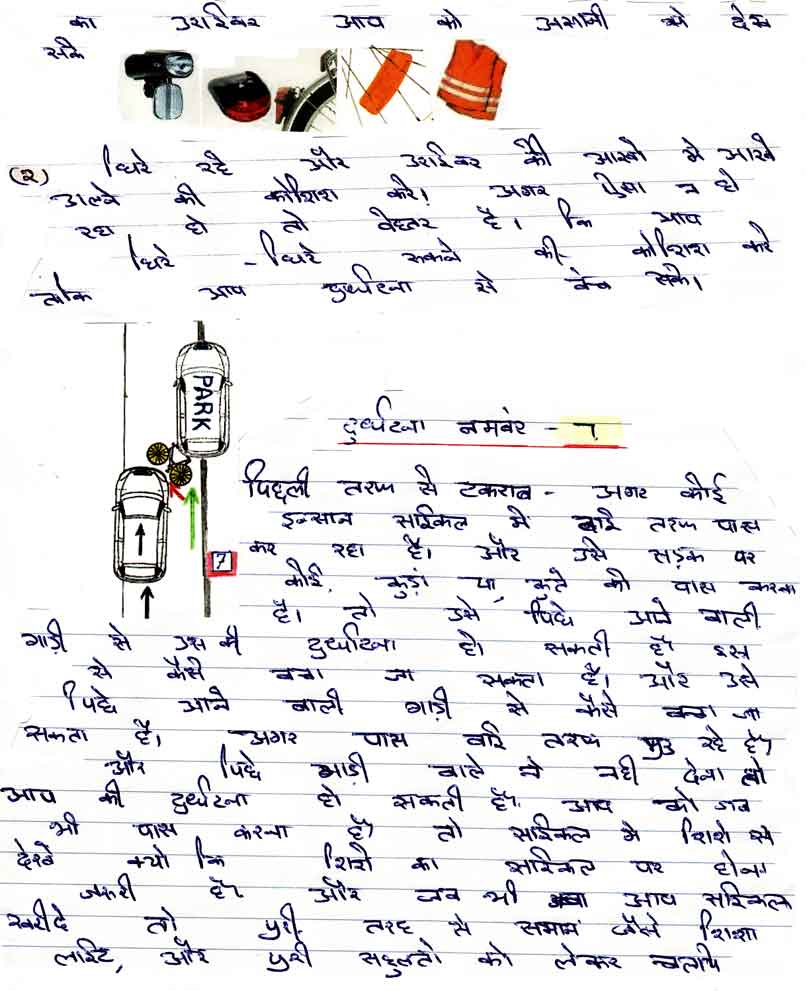 का उराईवर आप को असानी से देख
सके
(२) धिरे रहे और उराईवर की आखो मे आखे
डालने की कोशिश करे। अगर ऐसा न हो
रहा हो तो बेहतर है। कि आप
धिरे - धिरे रूकने की कोशिश करे
ताकि आप दुर्घटना से बच सके।
PARK
7
दुर्घटना नमबंर - 7.
पिछली तरफ से टकराव - अगर कोई
इन्सान साईकिल मे बाई तरफ पास
कर रहा है। और उसे सड़क पर
कोई, कुड़ां या, कुते को पास करना
है। तो उसे पिछे आने वाली
गाड़ी से उस की दुर्घटना हो सकती है। इस
से कैसे बचा जा सकता है। और उसे
पिछे आने वाली गाड़ी से कैसे बचा जा
सकता है। अगर पास बाई तरफ मुड रहे है।
और पिछे गाड़ी वाले ने नही देखा तो
आप की दुर्घटना हो सकती है। आप को जब
भी पास करना है। तो साईकिल मे शिशे से
देखे क्यो कि शिशे का साईकिल पर होना
जरूरी है। और जब भी आप सईकिल
खरीदे तो पुरी तरह से समान जैसे शिशा
लाईट, और पुरी सहुलतो को लेकर चलाये